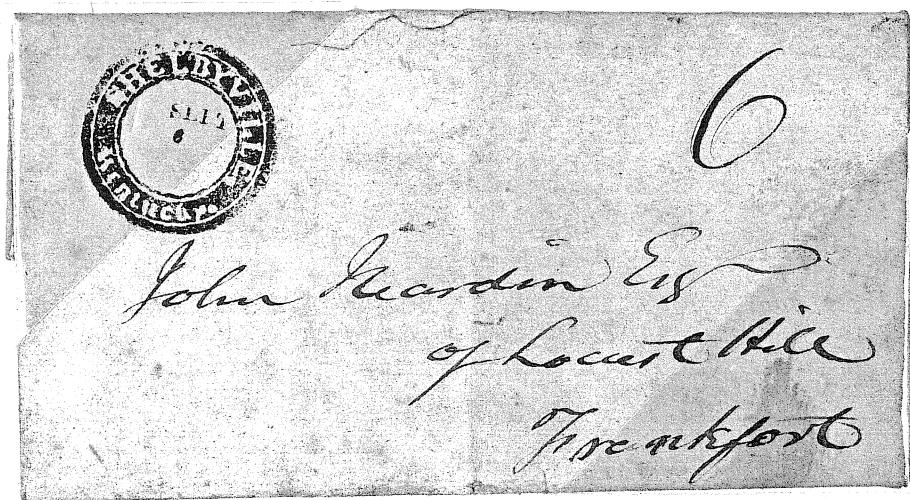 SHELBYVILLE
KENTUCKY
SEPT
6
6
John Heardin Esq
of Locust Hill
Frankfort